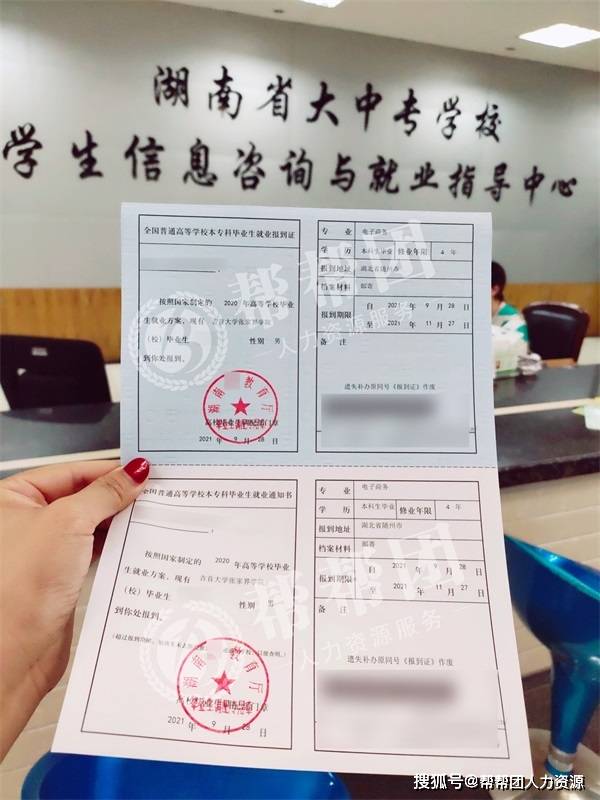 湖南省大中专学校
学生信息咨询与就业指导中心
全国普通高等学校本专科毕业生就业报到证
按照国家制定的 2020 年高等学校毕业
生就业方案，现有 吉首大学张家界学院
（校）毕业生 性别 男
到你处报到。
湖南教育厅
2021 年 9 月 28 日
专 业 电子商务
学 历 本科生毕业 修业年限 4 年
报到地址 湖北省随州市
档案材料 邮寄
报到期限 自 2021 年 9 月 28 日
至 2021 年 11 月 27 日
备 注
遗失补办原同号《报到证》作废
帮帮团
人力资源服务
全国普通高等学校本专科毕业生就业通知书
按照国家制定的 2020 年高等学校毕业
生就业方案，现有 吉首大学张家界学院
（校）毕业生 性别 男
到你处报到。
湖南教育厅
2021 年 9 月 28 日
专 业 电子商务
学 历 本科生毕业 修业年限 4 年
报到地址 湖北省随州市
档案材料 邮寄
报到期限 自 2021 年 9 月 28 日
至 2021 年 11 月 27 日
备 注
遗失补办原同号《报到证》作废
帮帮团
人力资源服务
搜狐号@帮帮团人力资源